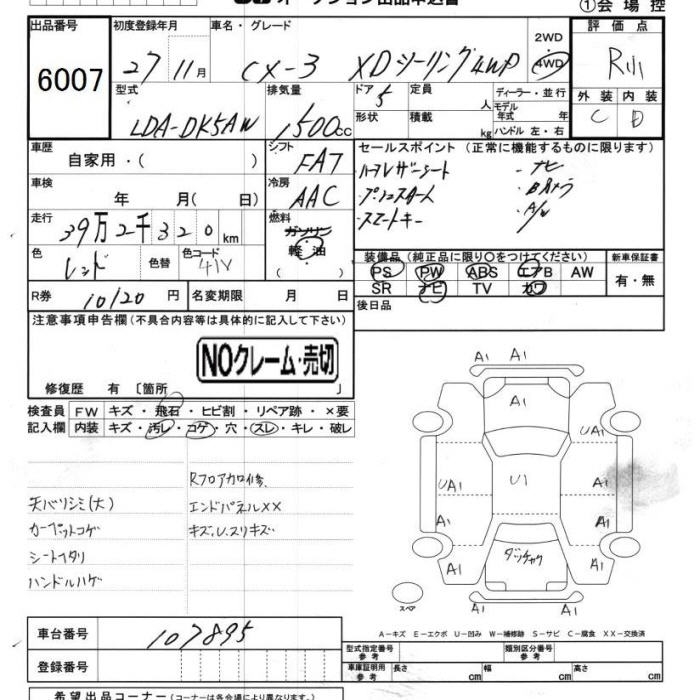 ①会場控
出品番号
6007
初度登録年月
27 11月
車名・グレード
CX-3 XDツーリング4WD
2WD
4WD
評価点
R
外装 内装
C D
型式
LDA-DK5AW
排気量
1500cc
ドア
5
定員
人
形状
積載
kg
ディーラー・並行
モデル年式 年
ハンドル 左・右
車歴
自家用・( )
シフト
FAT
セールスポイント (正常に機能するものに限ります)
ハーフレザーシート
・ナビ
プッシュスタート
・Bカメラ
スマートキー
・A/W
車検
年 月( 日)
冷房
AAC
走行
39万2千320km
燃料
ガソリン
軽油
色
レッド
色替
色コード
41V
装備品 (純正品に限り○をつけてください)
PS PW ABS エアB AW
SR ナビ TV カワ
新車保証書
有・無
R券
10120円
名変期限 月 日
後日品
注意事項申告欄 (不具合内容等は具体的に記入して下さい)
NOクレーム・売切
修復歴 有 〔箇所 〕
検査員
記入欄
FW キズ・飛石・ヒビ割・リペア跡・×要
内装 キズ・汚レ・コゲ・穴・スレ・キレ・破レ
Rフロアカロ修、
天バリシミ(大)
エンドパネルXX
カーペットコゲ
キズ、U、スリキズ
シートヘタリ
ハンドルハゲ
A1 A1
A1
A1 A1
UA1 U1 A1
A1 A1
ダッチャク
A1 A1
A1 A1
スペア
A-キズ E-エクボ U-凹み W-補修跡 S-サビ C-腐食 XX-交換済
車台番号
107895
登録番号
型式指定番号
参考
類別区分番号
参考
車庫証明用
参考
長さ cm
幅 cm
高さ cm
希望出品コーナー (コーナーは各会場により異なります。)